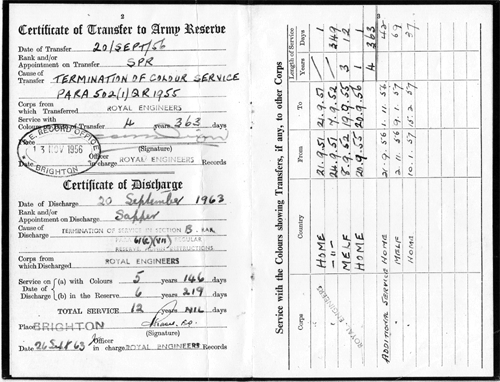 2
Certificate of Transfer to Army Reserve
Date of Transfer 20/SEPT/56
Rank and/or
Appointment on Transfer SPR
Cause of
Transfer TERMINATION OF COLOUR SERVICE
PARA 502(1) QR 1955
Corps from
which Transferred ROYAL ENGINEERS
Service with
Colours Transfer 4 years 363 days
R.E. RECORD OFFICE
13 NOV 1956
BRIGHTON
(Signature)
Officer
in charge ROYAL ENGINEERS Records
Certificate of Discharge
Date of Discharge 20 September 1963
Rank and/or
Appointment on Discharge Sapper
Cause of
Discharge TERMINATION OF SERVICE IN SECTION B. RAR
61(E)(VII) REGULAR
INSTRUCTIONS
Corps from
which Discharged ROYAL ENGINEERS
Service on (a) with Colours 5 years 146 days
Date of
Discharge (b) in the Reserve 6 years 219 days
TOTAL SERVICE 12 years NIL days
Place BRIGHTON
(Signature)
Officer
Date 26 Sept 63 in charge ROYAL ENGINEERS Records
Service with the Colours showing Transfers, if any, to other Corps
Corps Country From To Length of Service
Years Days
HOME 21.9.51 21.9.51 / 1
-"- 24.9.51 7.9.52 / 349
MELF 8.9.52 19.9.55 3 12
HOME 20.9.55 20.9.56 1 1
ROYAL ENGINEERS 4 363
ADDITIONAL SERVICE HOME 21.9.56 1.11.56 42
MELF 2.11.56 9.1.57 69
HOME 10.1.57 15.2.57 37